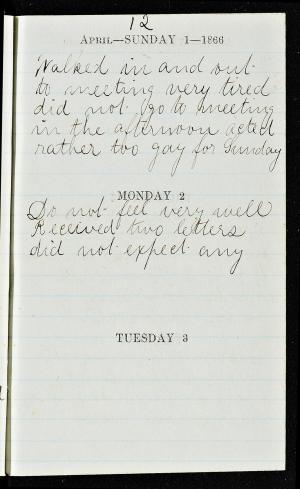 12
April.—SUNDAY 1—1866
Walked in and out
to meeting very tired
did not go to meeting
in the afternoon acted
rather too gay for Sunday
MONDAY 2
Do not feel very well
Received two letters
did not expect any
TUESDAY 3